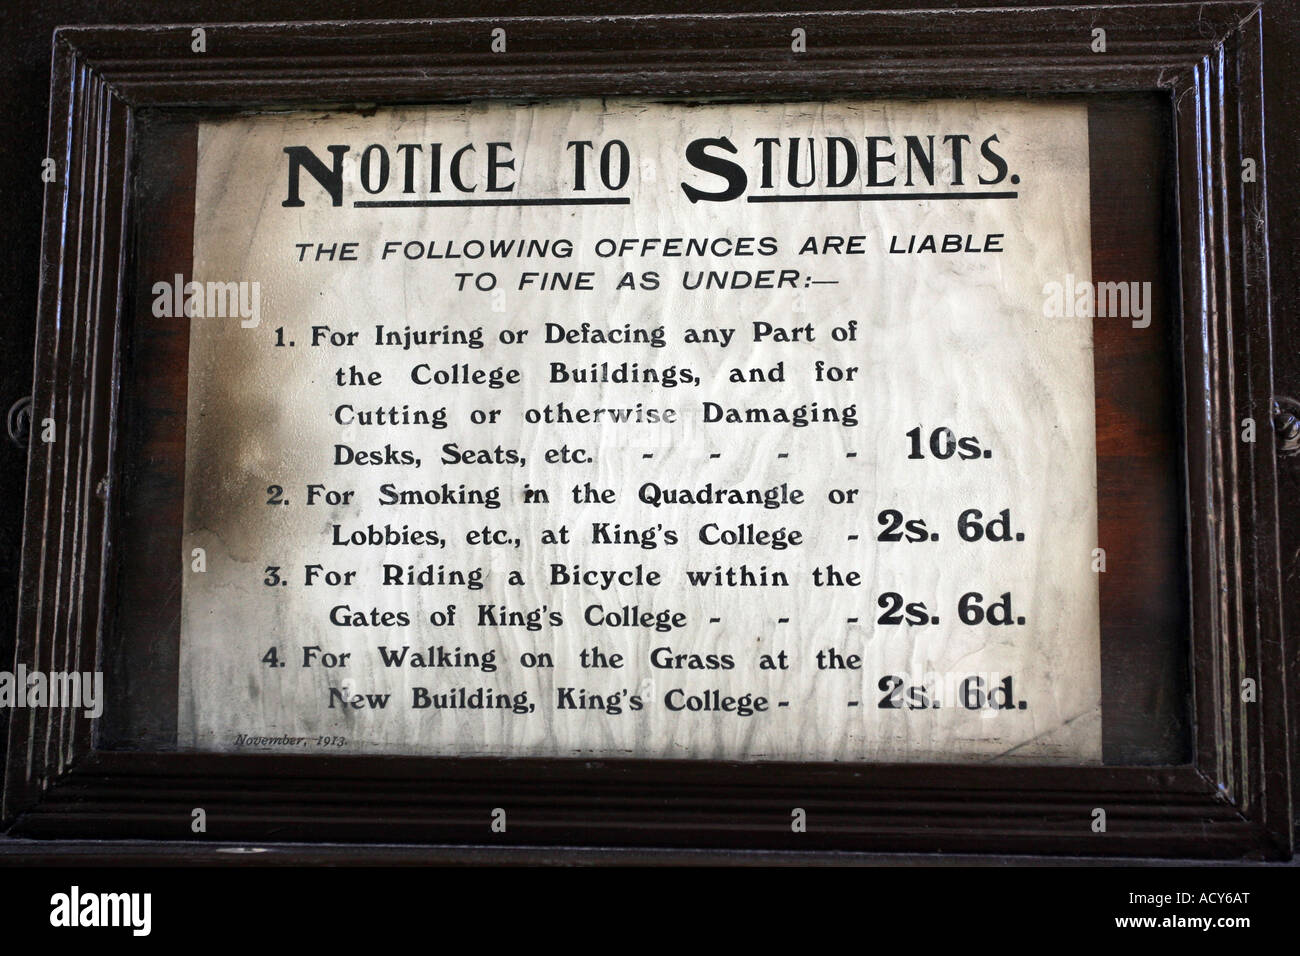 NOTICE TO STUDENTS.
THE FOLLOWING OFFENCES ARE LIABLE
TO FINE AS UNDER:—
1. For Injuring or Defacing any Part of
the College Buildings, and for
Cutting or otherwise Damaging
Desks, Seats, etc. - - - - 10s.
2. For Smoking in the Quadrangle or
Lobbies, etc., at King's College - 2s. 6d.
3. For Riding a Bicycle within the
Gates of King's College - - - 2s. 6d.
4. For Walking on the Grass at the
New Building, King's College - - 2s. 6d.
November, 1913.
alamy
alamy
alamy
Image ID: ACY6AT
www.alamy.com